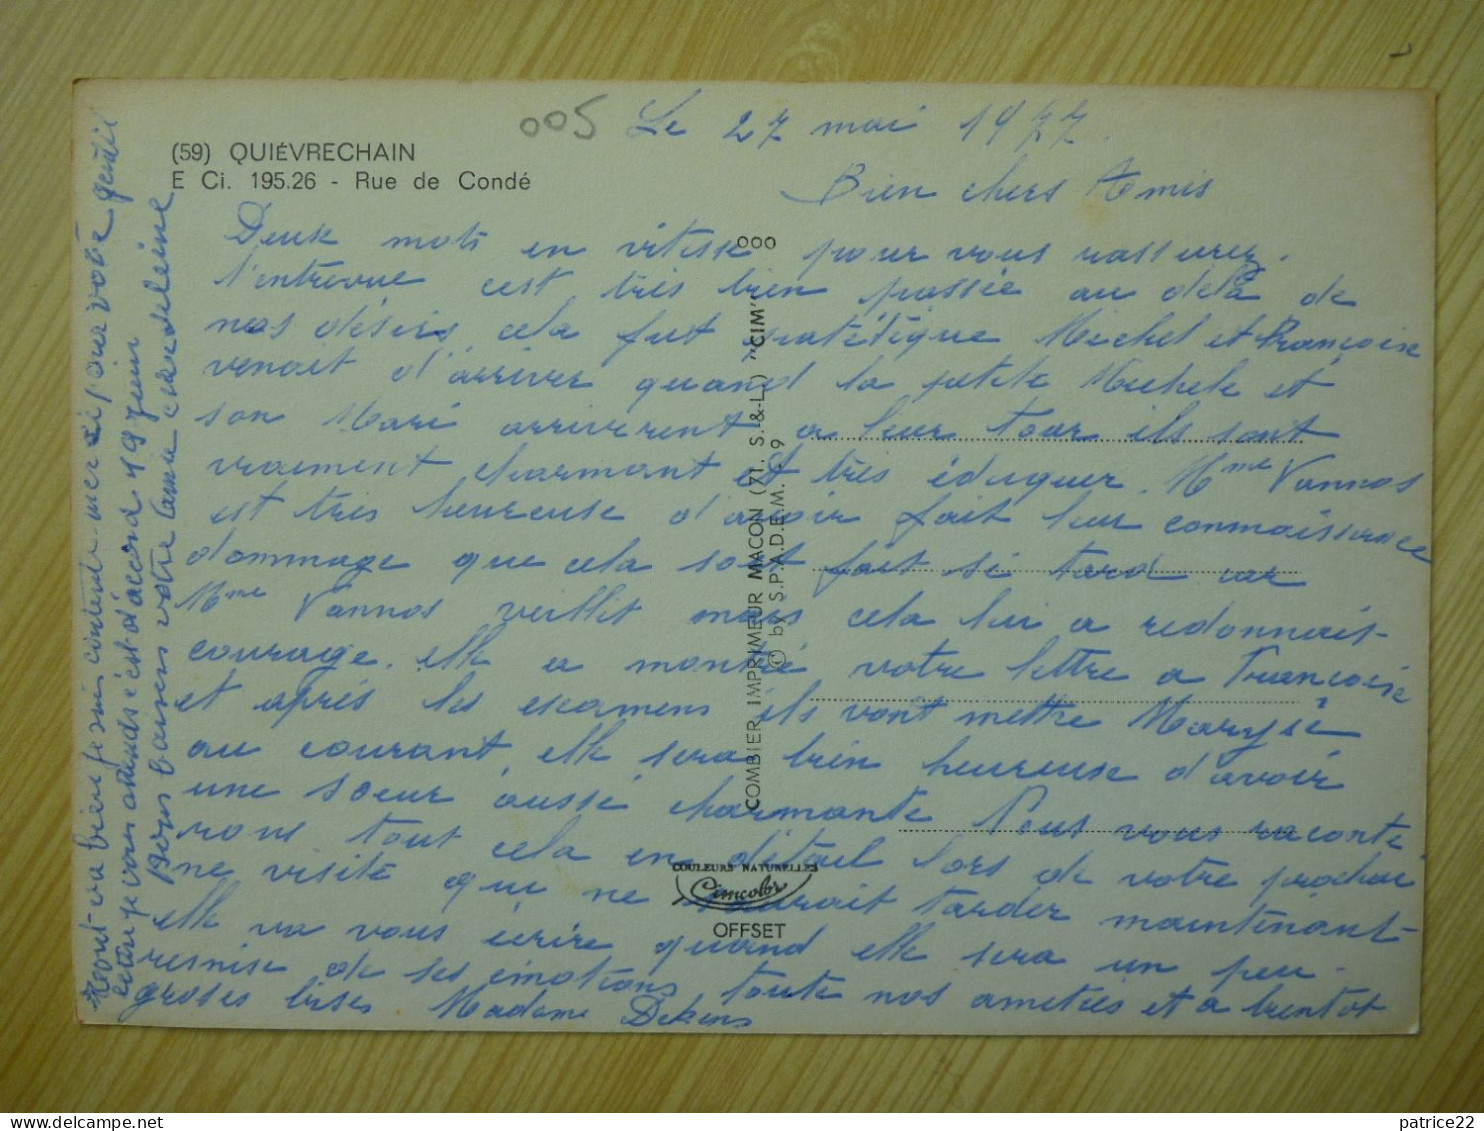 005 Le 27 mai 1977.
(59) QUIÉVRECHAIN
E Ci. 195.26 - Rue de Condé
Bien chers Amis
Deux mots en vitesse pour vous rassurez.
l'entrevue cest très bien passée au delà de
nos désirs, cela fut Michel et Françoise
venait d'arriver quand la petite Michele et
son Mari arrivèrent a leur tour ils sont
vraiment charmant et très éduquer. Mme Vannos
est très heureuse d'avoir fait leur connaissance
dommage que cela soit fait si tard car
Mme Vannos veillit mais cela lui a redonnait
courage. elle a montré votre lettre a Françoise
et après les examens ils vont mettre Maryse
au courant, elle sera bien heureuse d'avoir
une soeur aussé charmante Nous vous raconte
rons tout cela en détail lors de votre prochai
ne visite qui ne saurait tarder maintenant
elle va vous écrire quand elle sera un peu
remise de ses émotions toute nos ametiés et a bientot
groses bises Madame Dekens
COMBIER IMPRIMEUR MACON (71. S.-&-L.) "CIM"
© by S.P.A.D.E.M.
COULEURS NATURELLES
Cimcolor
OFFSET
va bien je suis contente merci pour votre gentil
je vous attends c'est d'accord 19 juin
Bons baisers votre amie
patrice22